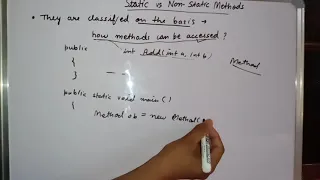 Static vs Non-Static Methods
• They are classified on the basis →
how methods can be accessed?
public int Add(int a, int b)
{
}
Method
public static void main()
{
Method ob = new Method(